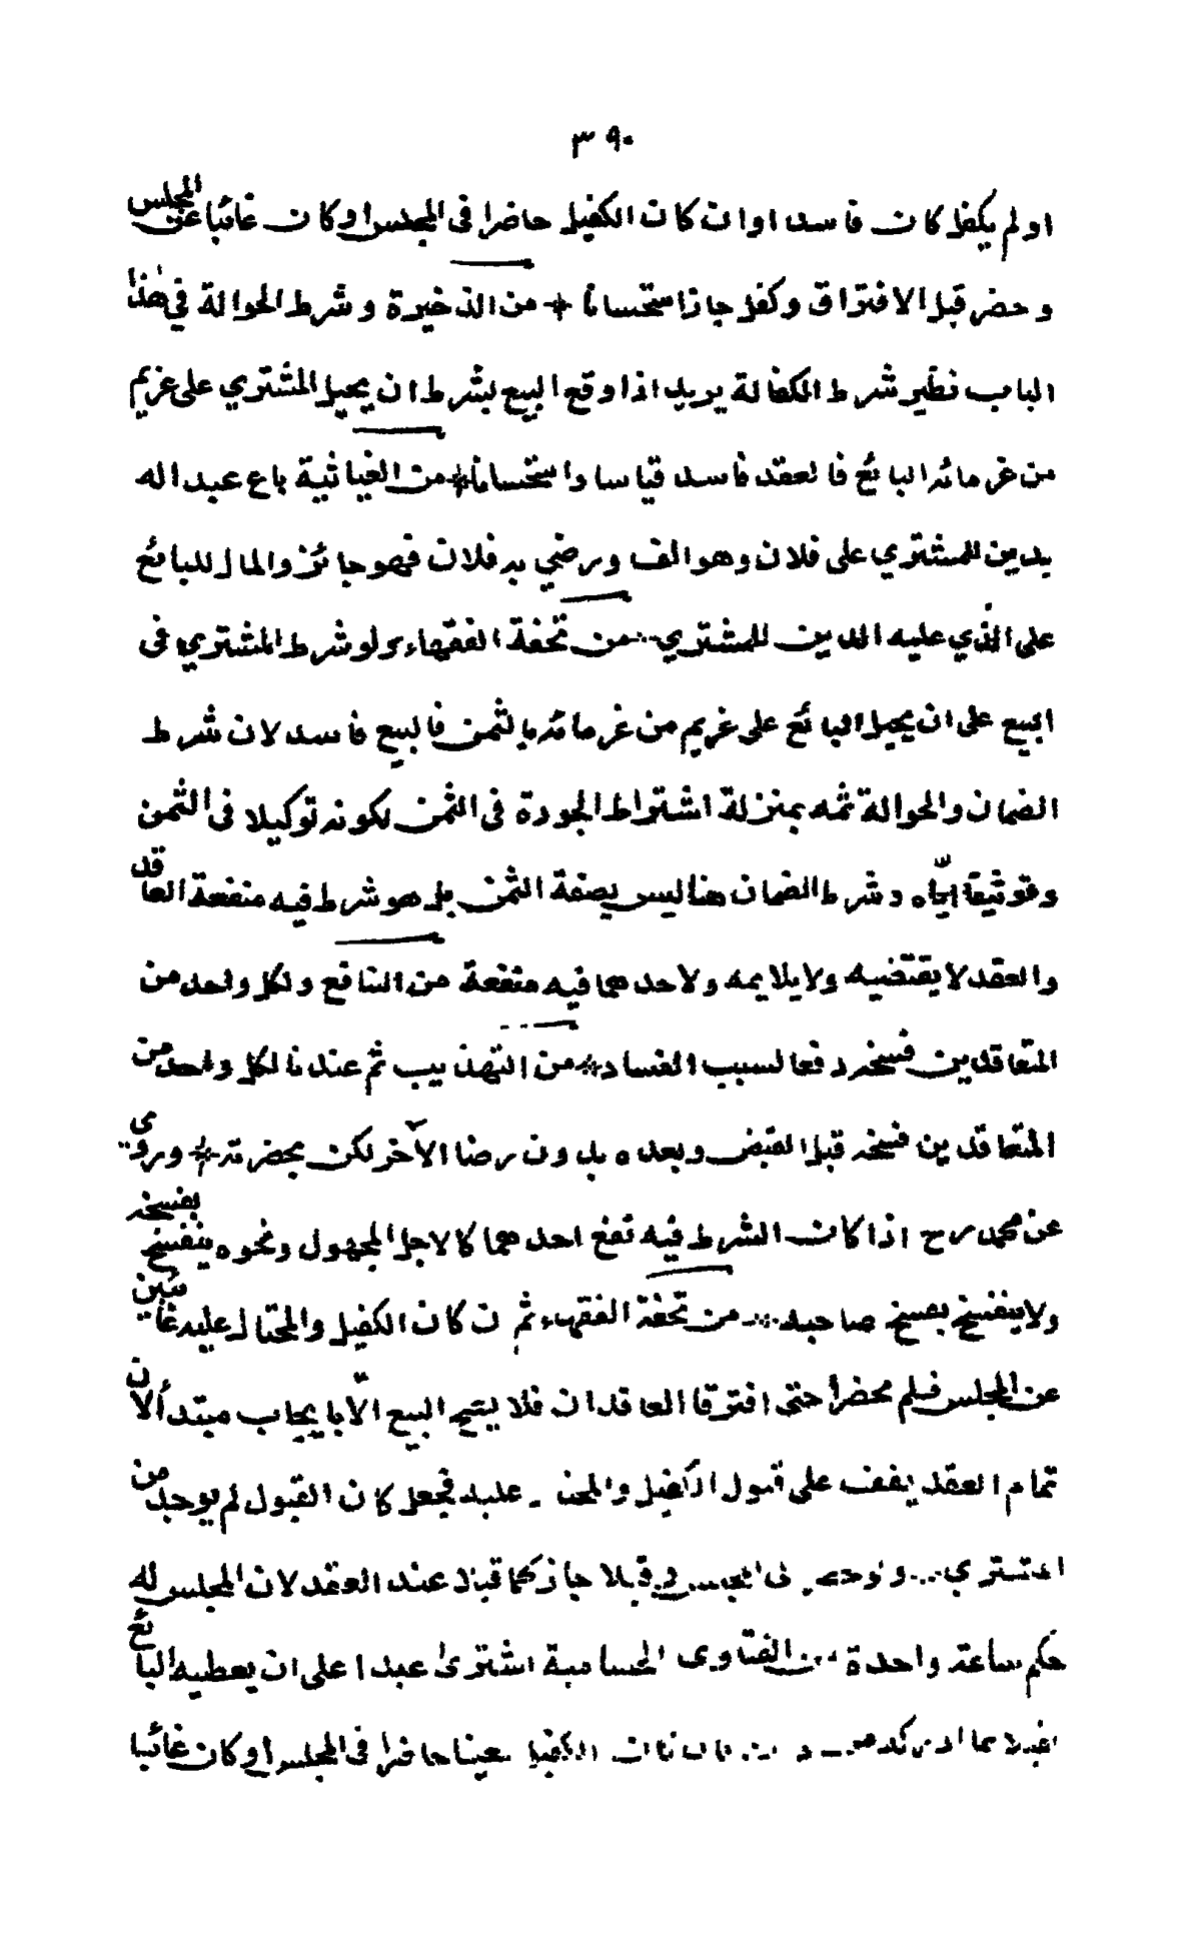 ٣٩٠
او لم يكفل كان فاسدا وان كان الكفيل حاضرا فى المجلس او كان غائبا عن المجلس
وحضر قبل الافتراق وكفل جاز استحسانا * من الذخيرة وشرط الحوالة في هذا
الباب نظير شرط الكفالة يريد اذا وقع البيع بشرط ان يحيل المشتري على غريم
من غرمائه البائع فالعقد فاسد قياسا واستحسانا * من الغياثية باع عبدا له
بدين للمشتري على فلان وهو الف ورضي به فلان فهو جائز والمال للبائع
على الذي عليه الدين للمشتري ∴ من تحفة الفقهاء ولو شرط المشتري فى
البيع على ان يحيل البائع على غريم من غرمائه بالثمن فالبيع فاسد لان شرط
الضمان والحوالة ثمه بمنزلة اشتراط الجودة فى الثمن لكونه توكيلا فى الثمن
وتوثيقا ايّاه وشرط الضمان هنا ليس بصفة الثمن بل هو شرط فيه منفعة العاقد
والعقد لا يقتضيه ولا يلايمه ولاحدهما فيه منفعة من النافع ولكل واحد من
المتعاقدين فسخه دفعا لسبب الفساد * من التهذيب ثم عندنا لكل واحد من
المتعاقدين فسخه قبل القبض وبعده بدون رضا الآخر لكن بحضرته * وروي
عن محمد رح اذا كان الشرط فيه نفع احدهما كالاجل المجهول ونحوه ينفسخ بفسخه
ولا ينفسخ بفسخ صاحبه ∴ من تحفة الفقهاء ثم ن كان الكفيل والمحتال عليه غائبين
عن المجلس فلم يحضرا حتى افترقا العاقدان فلا يتم البيع الّا بايجاب مبتدأ لان
تمام العقد يقف على قبول الكفيل والمحتال عليه فجعل كان القبول لم يوجد من
المشتري ∴ وقبلا جاز كما قبلا عند العقد لان المجلس له
حكم ساعة واحدة ∴ من الفتاوى الحسامية اشترى عبدا على ان يعطيه البائع
كفيلا بما ادركه من الكفيل معينا حاضرا فى المجلس او كان غائبا